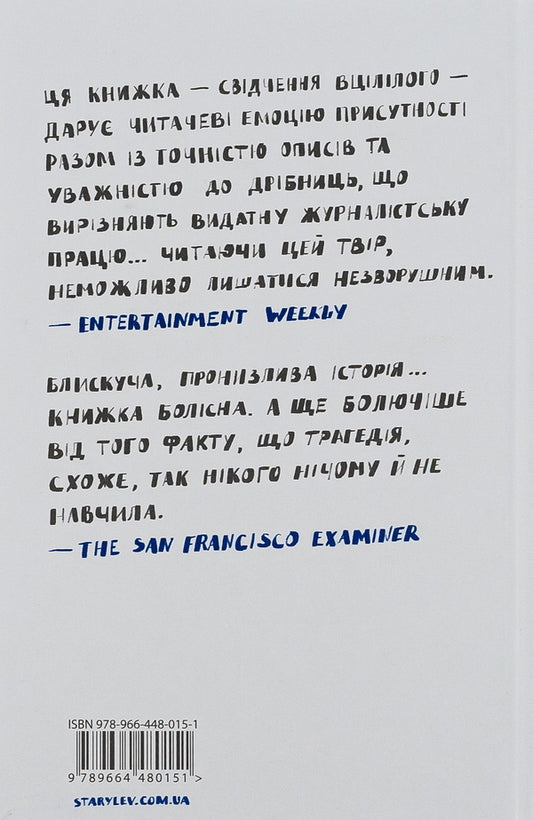 ЦЯ КНИЖКА — СВІДЧЕННЯ ВЦІЛІЛОГО —
ДАРУЄ ЧИТАЧЕВІ ЕМОЦІЮ ПРИСУТНОСТІ
РАЗОМ ІЗ ТОЧНІСТЮ ОПИСІВ ТА
УВАЖНІСТЮ ДО ДРІБНИЦЬ, ЩО
ВИРІЗНЯЮТЬ ВИДАТНУ ЖУРНАЛІСТСЬКУ
ПРАЦЮ... ЧИТАЮЧИ ЦЕЙ ТВІР,
НЕМОЖЛИВО ЛИШАТИСЯ НЕЗВОРУШНИМ.
— ENTERTAINMENT WEEKLY
БЛИСКУЧА, ПРОНИЗЛИВА ІСТОРІЯ...
КНИЖКА БОЛІСНА. А ЩЕ БОЛЮЧІШЕ
ВІД ТОГО ФАКТУ, ЩО ТРАГЕДІЯ,
СХОЖЕ, ТАК НІКОГО НІЧОМУ Й НЕ
НАВЧИЛА.
— THE SAN FRANCISCO EXAMINER
ISBN 978-966-448-015-1
9 789664 480151 >
STARYLEV.COM.UA